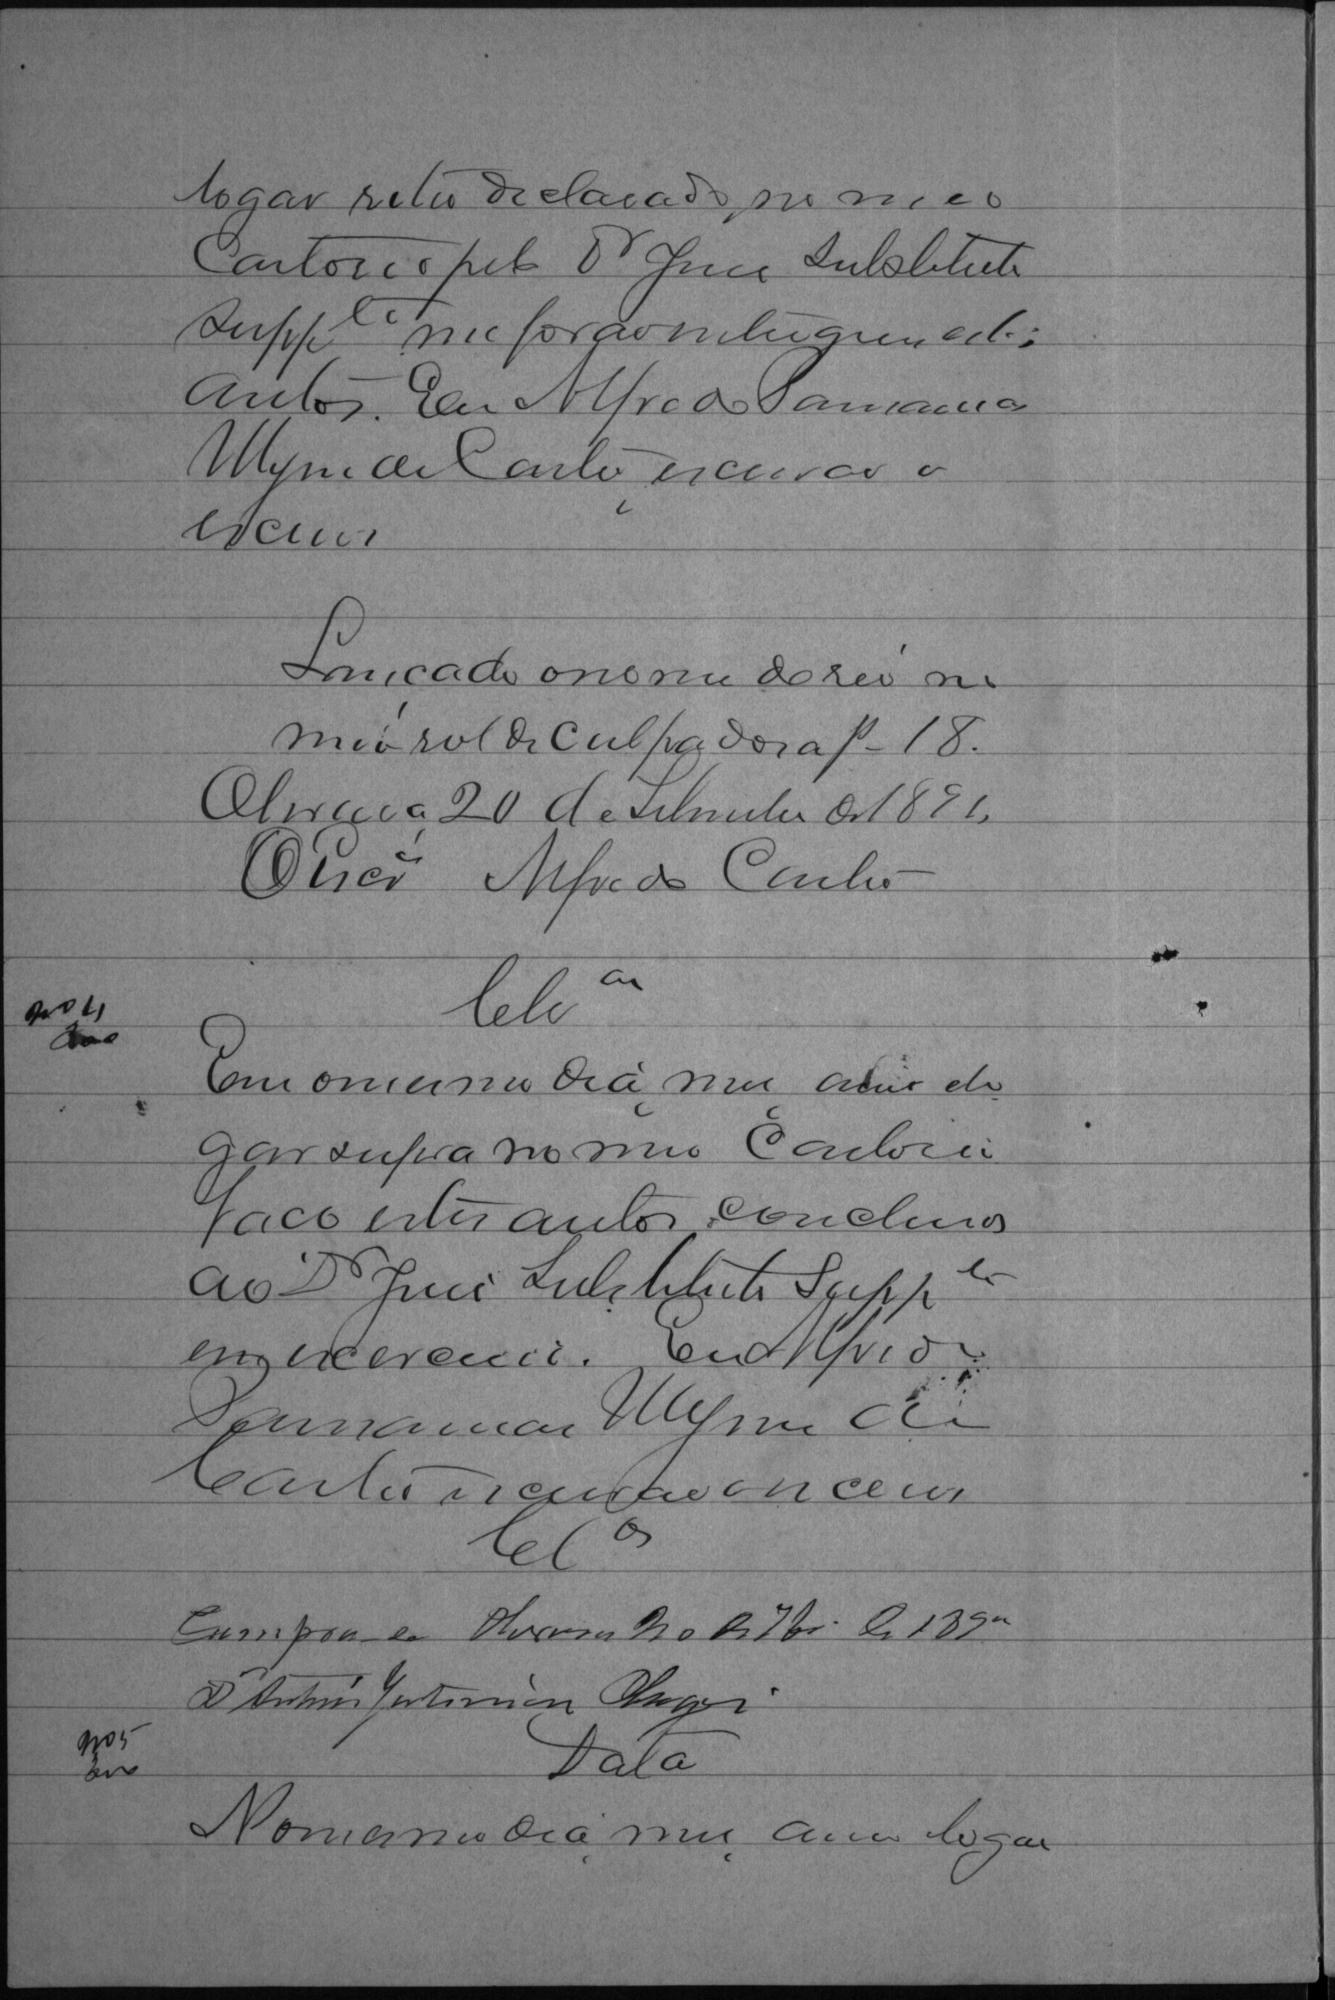 logar retro declarado, no meo
Cartorio pelo Dr Juiz Substituto
Suppte me forão entregues estes
autos. Eu Alfredo
de Castro, escrivão o
escrevi
Lançado o nome do reo no
meo rol de culpados a fl 18.
20 de Setembro de 189
O Escão Alfredo Castro
Clsão
Em o mesmo dia, mez, anno e lo
gar supra no meo Cartorio
faco estes autos conclusos
ao Dr Juiz Substituto Suppte
em exercicio. Eu Alfredo
de
Castro escrivão o escrevi
Clos
Cumpra-se 20 de 7bro de 189
Dr
Data
No mesmo dia, mez, anno logar